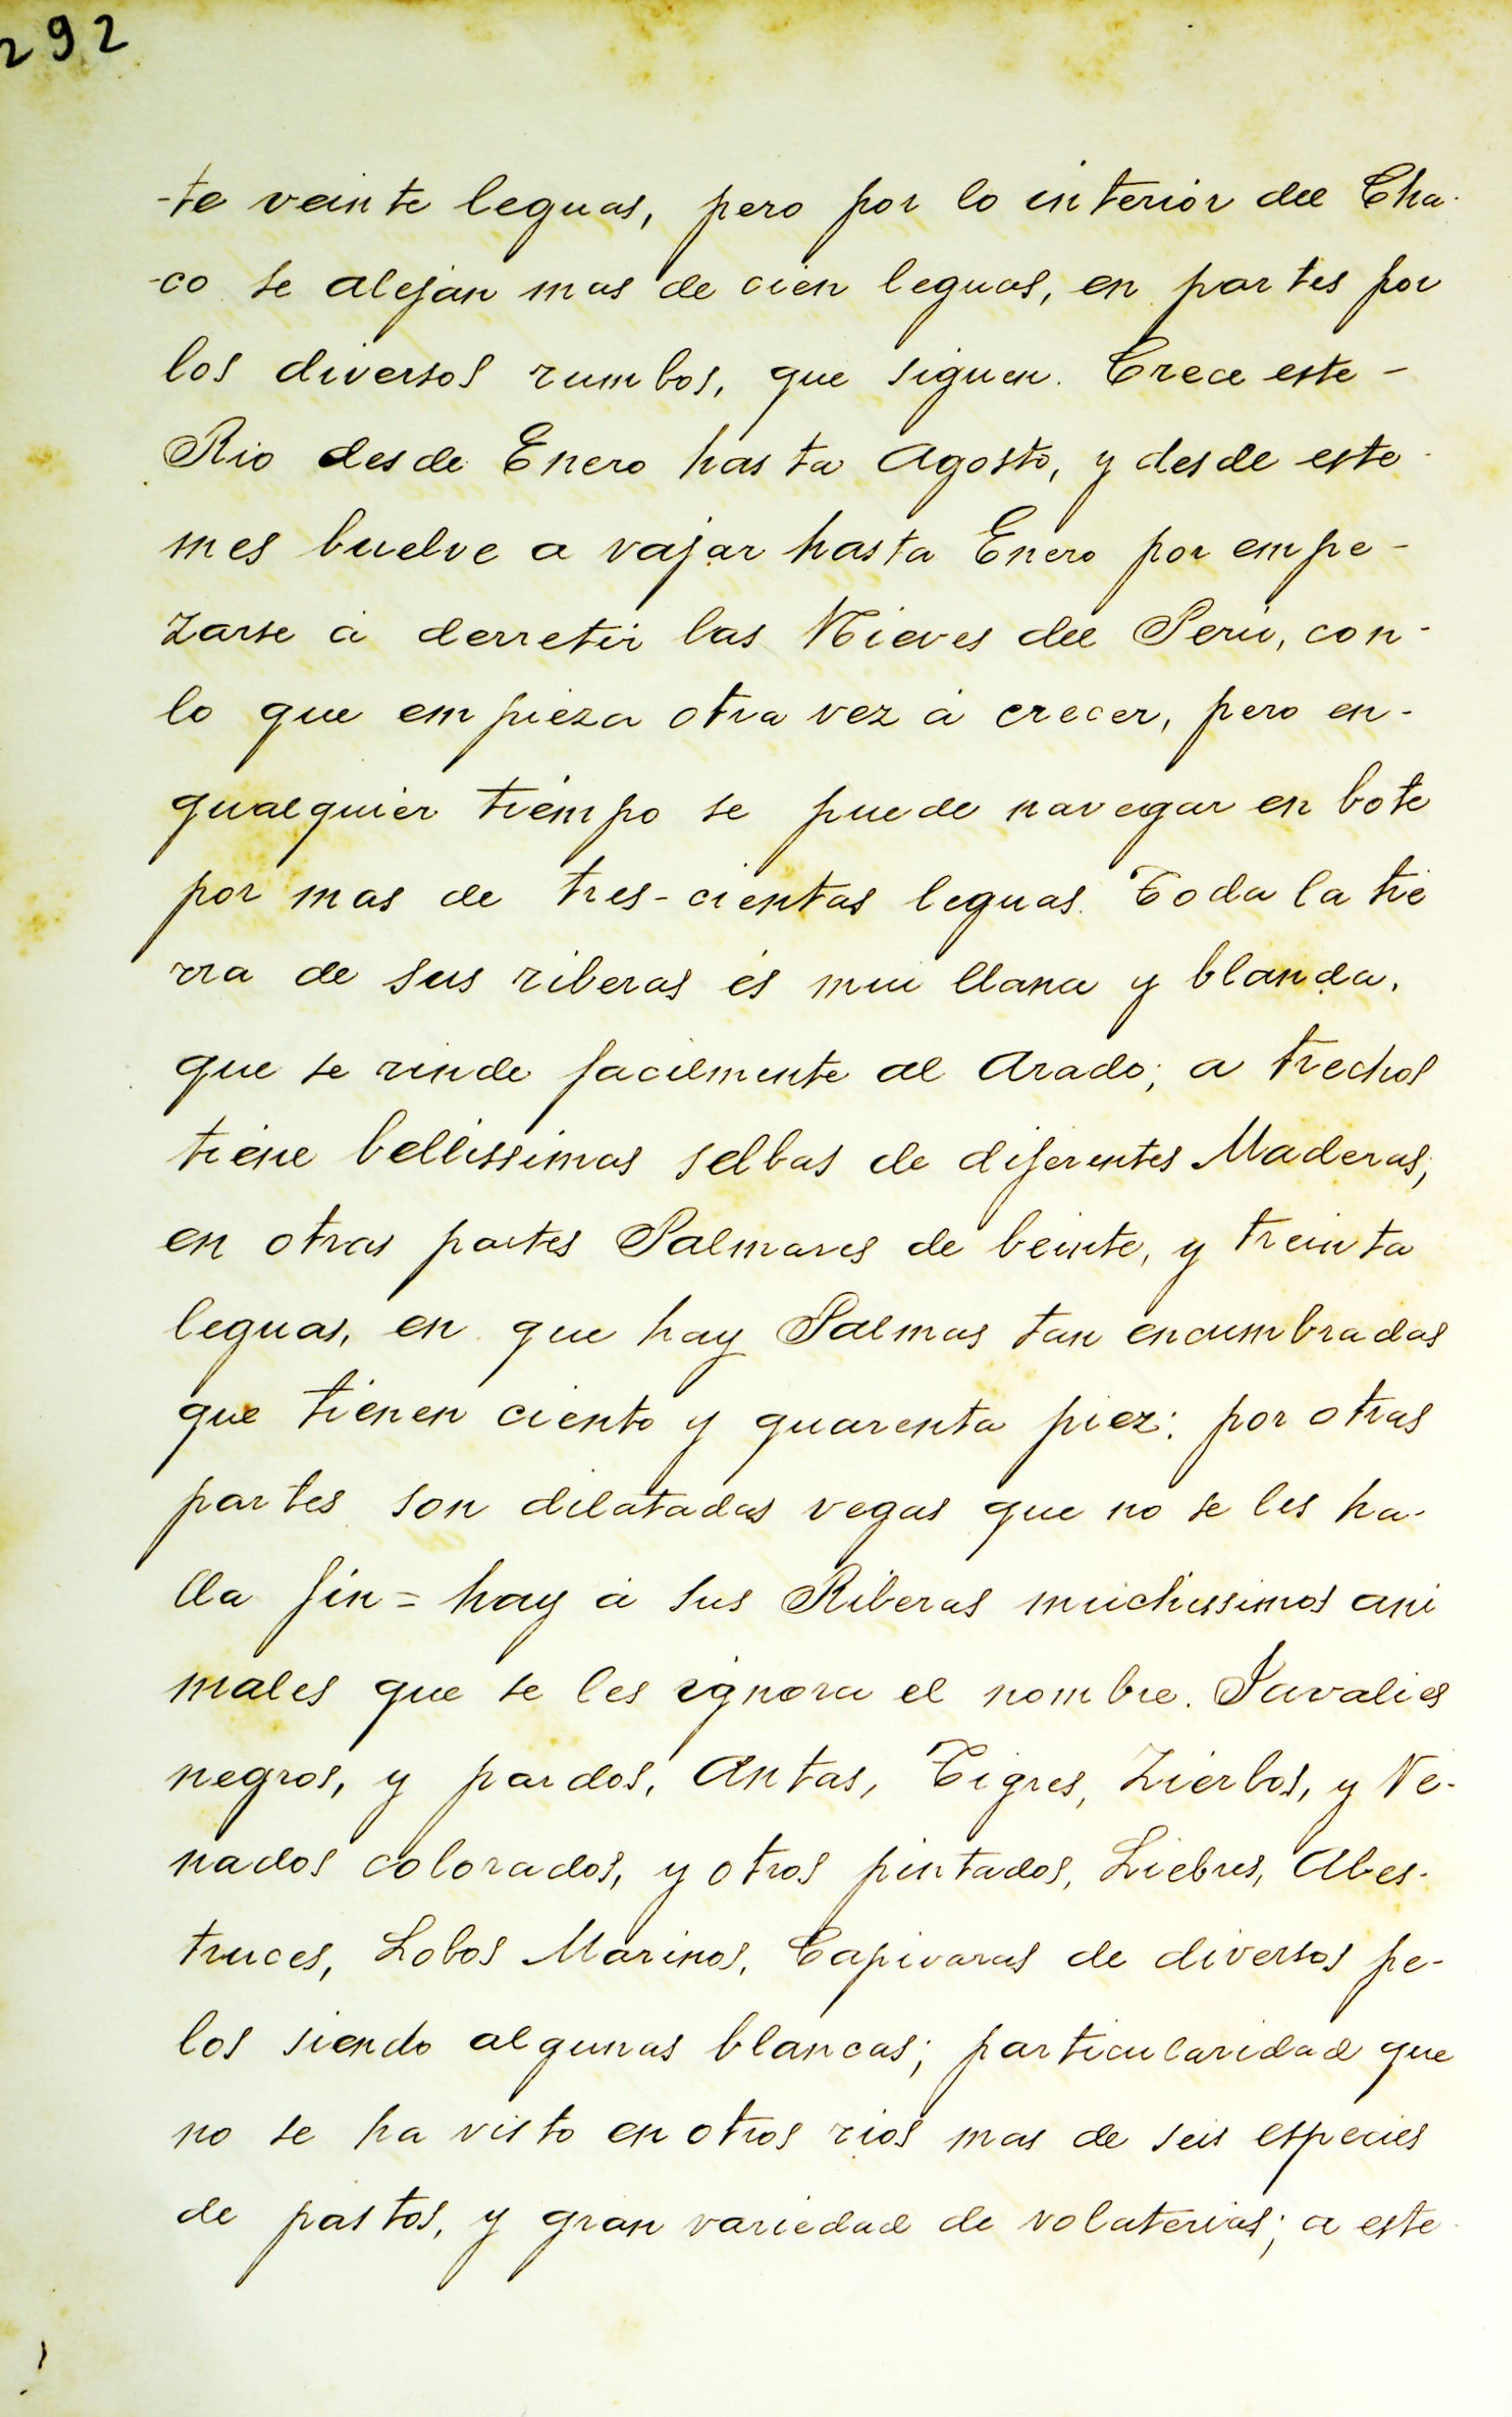 292
-te veinte leguas, pero por lo interior del Cha-
-co se alejan mas de cien leguas, en partes por
los diversos rumbos, que siguen. Crece este -
Rio desde Enero hasta Agosto, y desde este
mes buelve a vajar hasta Enero por empe-
zarse á derretir las Nieves del Perú, con-
lo que empieza otra vez á crecer, pero en-
qualquier tiempo se puede navegar en bote
por mas de tres-cientas leguas. Toda la tie
rra de sus riberas és mui llana y blanda,
que se rinde facilmente al Arado; a trechos
tiene bellissimas selbas de diferentes Maderas;
en otras partes Palmares de beinte, y treinta
leguas, en que hay Palmas tan encumbradas
que tienen ciento y quarenta piez: por otras
partes son dilatadas vegas que no se les ha-
lla fin = hay á sus Riberas muichissimos ani
males que se les ignora el nombre. Javalies
negros, y pardos, Antas, Tigres, Zierbos, y Ve-
nados colorados, y otros pintados, Liebres, Abes-
truces, Lobos Marinos, Capivaras de diversos pe-
los siendo algunas blancas; particularidad que
no se ha visto en otros rios mas de seis especies
de pastos, y gran variedad de volaterias; a este